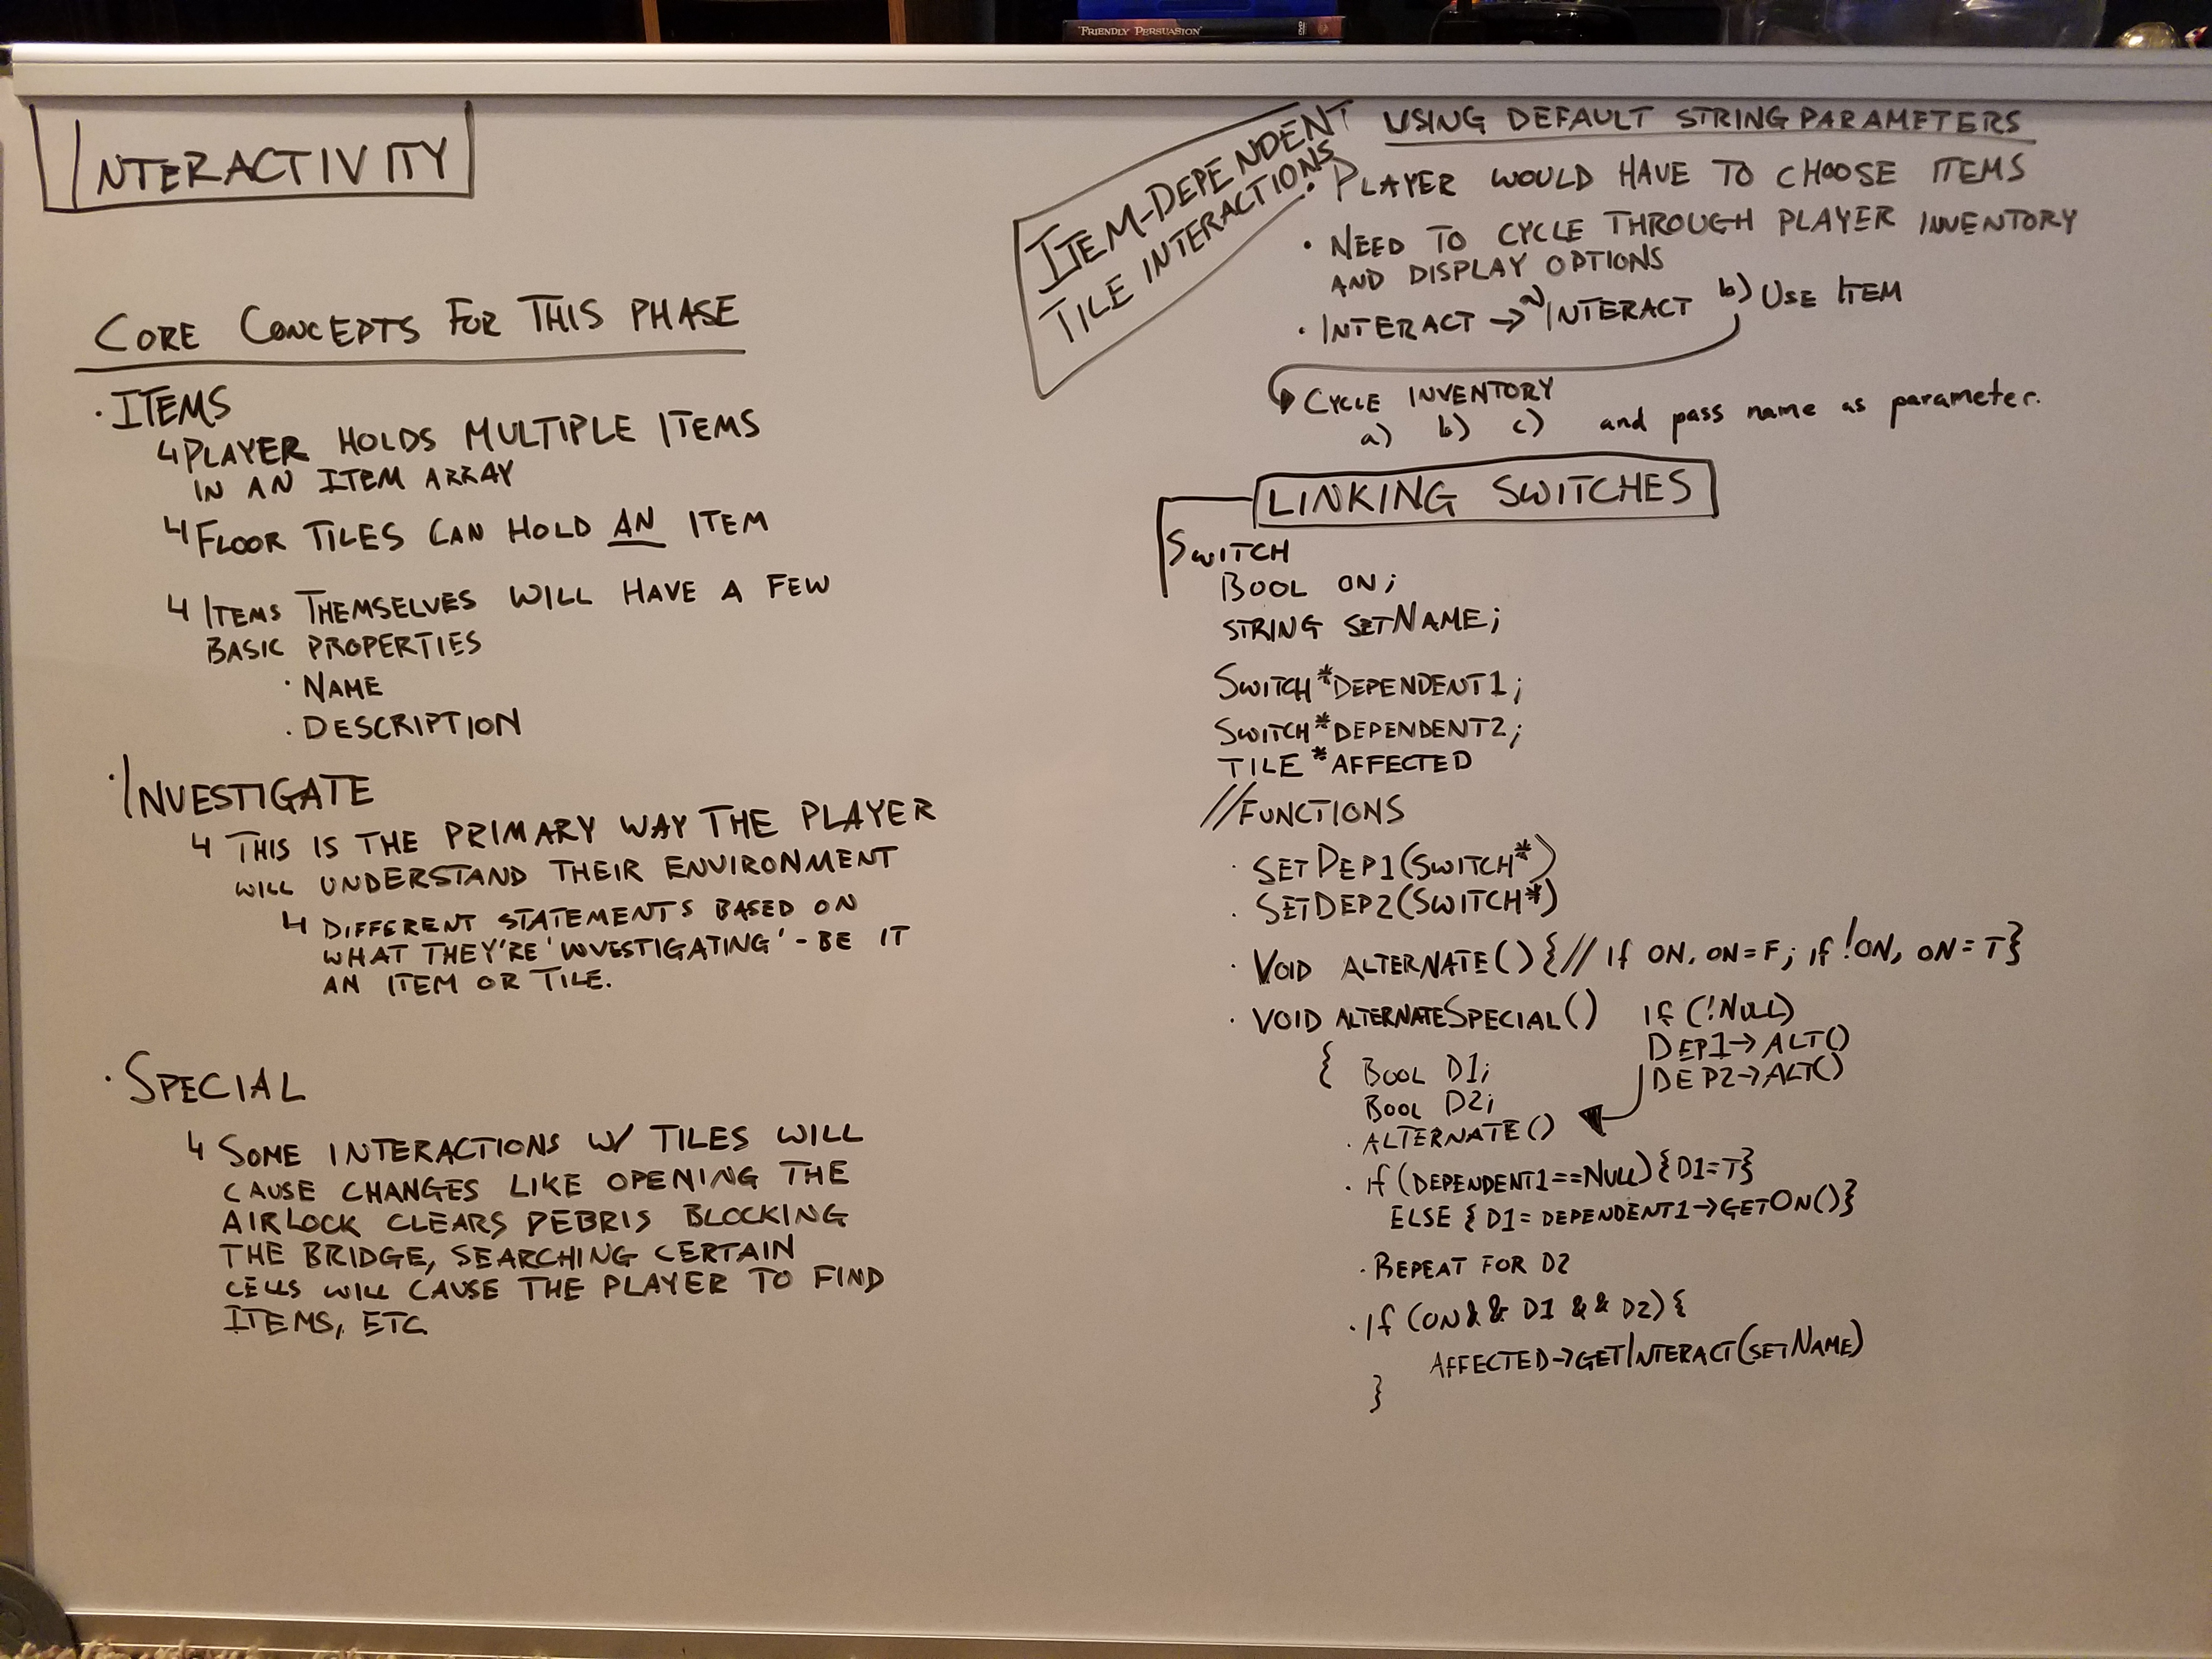 "FRIENDLY PERSUASION"
INTERACTIVITY
CORE CONCEPTS FOR THIS PHASE
· ITEMS
↳ PLAYER HOLDS MULTIPLE ITEMS
IN AN ITEM ARRAY
↳ FLOOR TILES CAN HOLD AN ITEM
↳ ITEMS THEMSELVES WILL HAVE A FEW
BASIC PROPERTIES
· NAME
· DESCRIPTION
· INVESTIGATE
↳ THIS IS THE PRIMARY WAY THE PLAYER
WILL UNDERSTAND THEIR ENVIRONMENT
↳ DIFFERENT STATEMENTS BASED ON
WHAT THEY'RE 'INVESTIGATING' - BE IT
AN ITEM OR TILE.
· SPECIAL
↳ SOME INTERACTIONS W/ TILES WILL
CAUSE CHANGES LIKE OPENING THE
AIRLOCK CLEARS DEBRIS BLOCKING
THE BRIDGE, SEARCHING CERTAIN
CELLS WILL CAUSE THE PLAYER TO FIND
ITEMS, ETC.
ITEM-DEPENDENT
TILE INTERACTIONS
USING DEFAULT STRING PARAMETERS
· PLAYER WOULD HAVE TO CHOOSE ITEMS
· NEED TO CYCLE THROUGH PLAYER INVENTORY
AND DISPLAY OPTIONS
· INTERACT → a) INTERACT b) USE ITEM
CYCLE INVENTORY
a) b) c) and pass name as parameter.
LINKING SWITCHES
SWITCH
BOOL ON;
STRING SETNAME;
SWITCH *DEPENDENT1;
SWITCH *DEPENDENT2;
TILE *AFFECTED
//FUNCTIONS
· SETDEP1(SWITCH*)
· SETDEP2(SWITCH*)
· VOID ALTERNATE() {// If ON, ON=F; if !ON, ON=T}
· VOID ALTERNATESPECIAL()
If (!NULL)
DEP1→ALT()
DEP2→ALT()
{ BOOL D1;
BOOL D2;
· ALTERNATE()
· If (DEPENDENT1==NULL) {D1=T}
ELSE { D1 = DEPENDENT1→GETON()}
· REPEAT FOR D2
· If (ON && D1 && D2) {
AFFECTED→GETINTERACT(SETNAME)
}